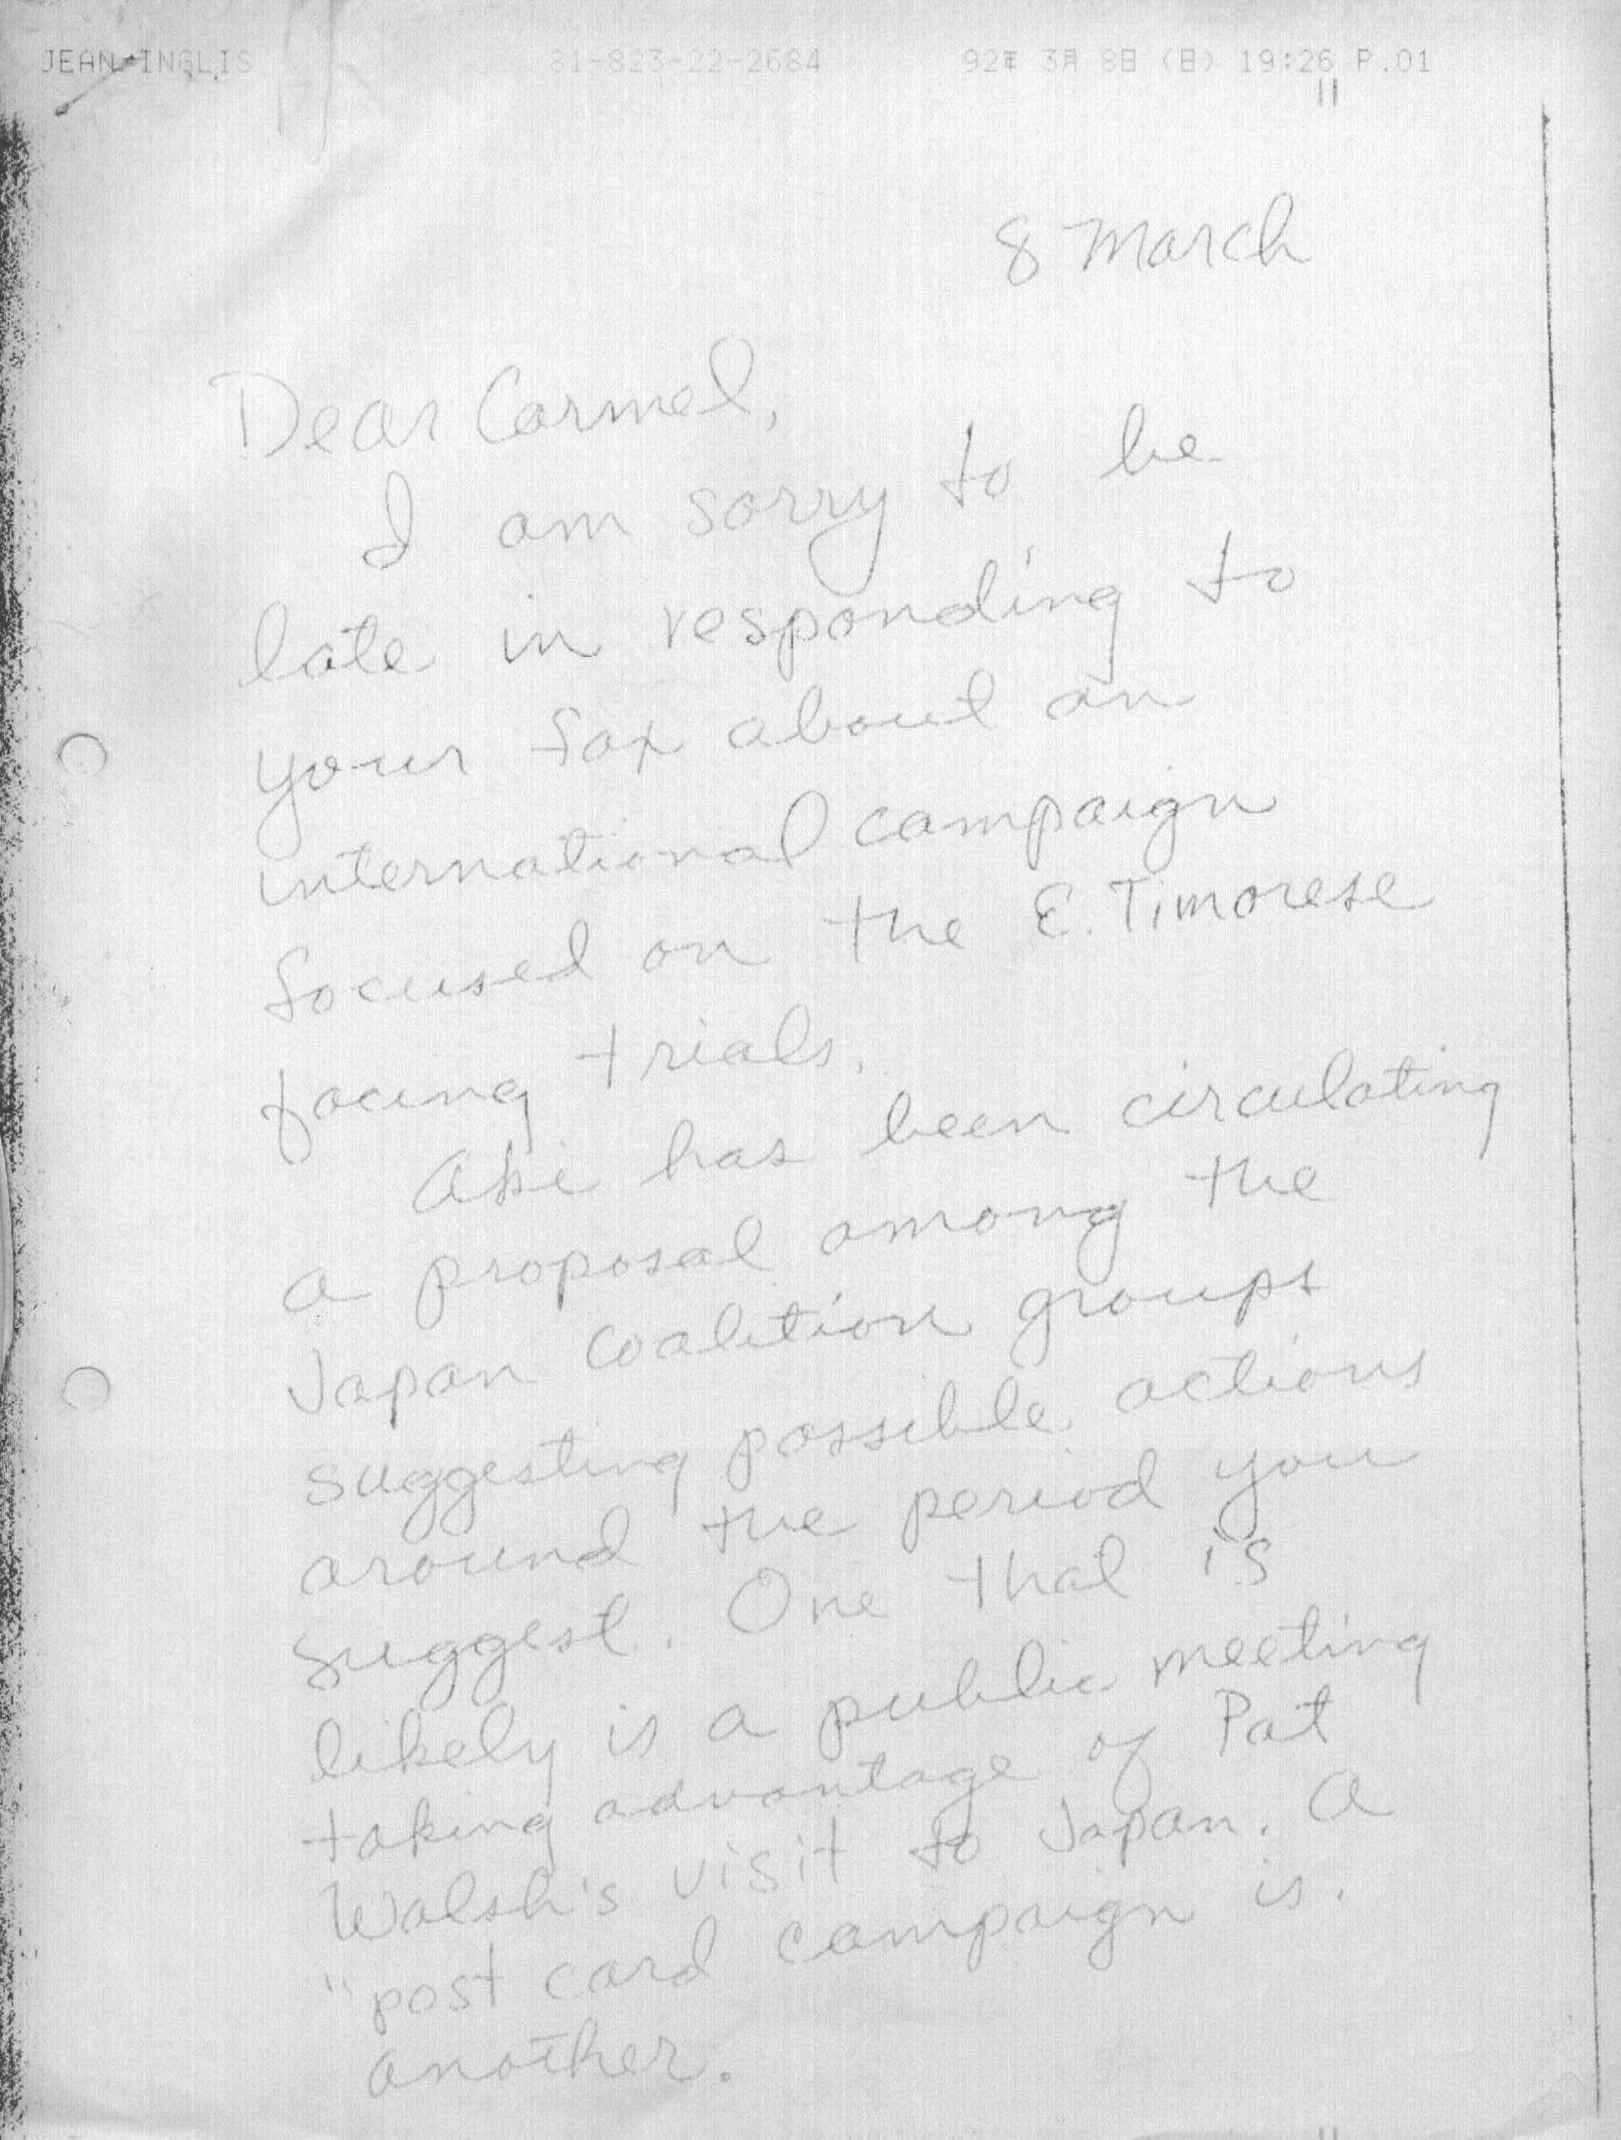 JEAN INGLIS 81-823-22-2684 92年 3月 8日 (日) 19:26 P.01
8 March
Dear Carmel,
I am sorry to be
late in responding to
your fax about an
international campaign
focused on the E. Timorese
facing trials.
Aki has been circulating
a proposal among the
Japan coalition groups
suggesting possible actions
around the period you
suggest. One that is
likely is a public meeting
taking advantage of Pat
Walsh's visit to Japan. A
"post card campaign is
another.